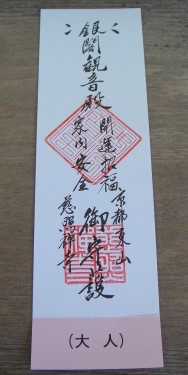 京都東山
開運招福
銀閣観音殿
御守護
家内安全
慈照禅寺
(大人)